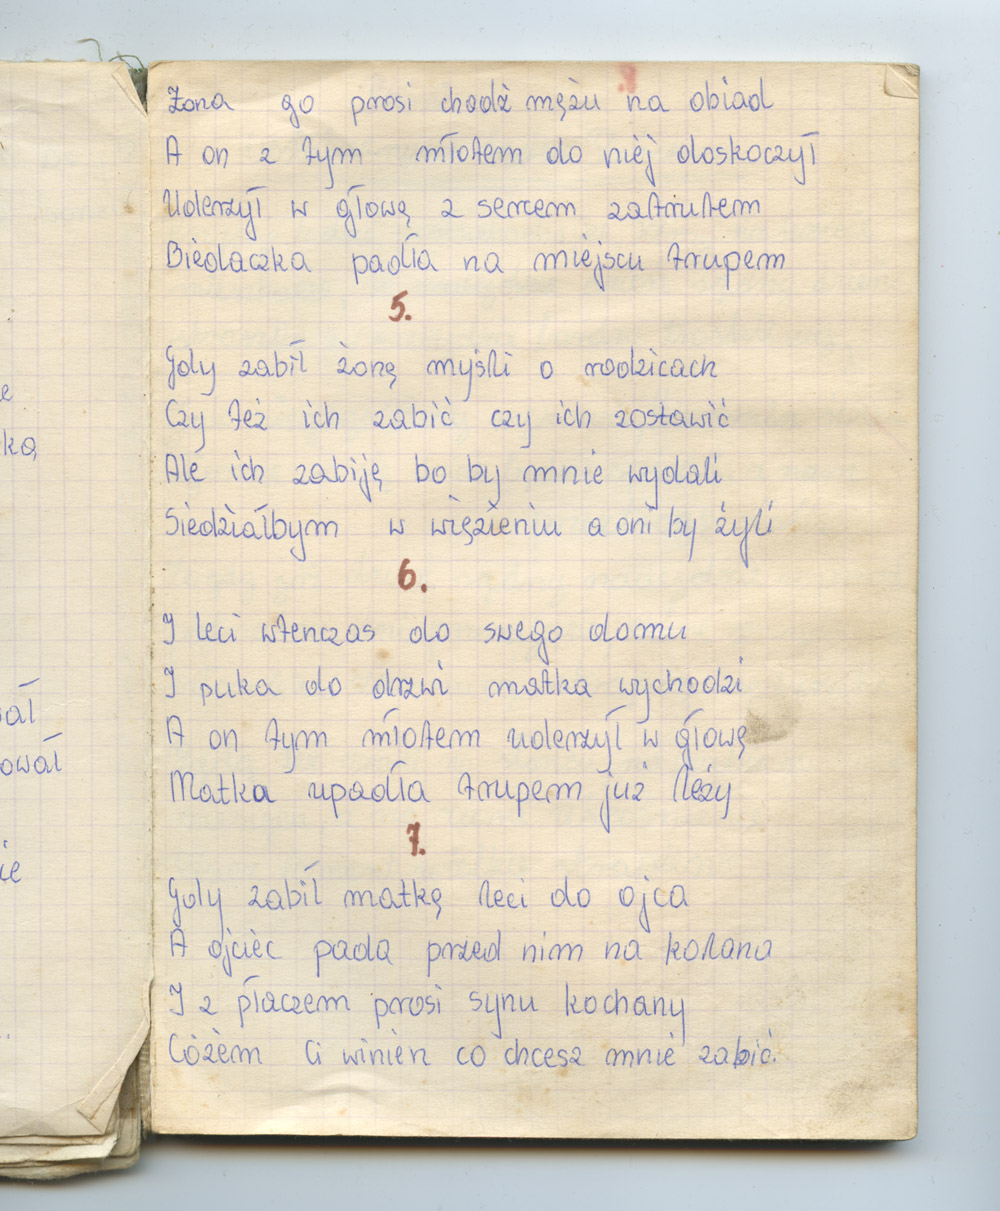 Żona go prosi chodź mężu na obiad
A on z tym młotem do niej doskoczył
Uderzył w głowę z sercem zatrutem
Biedaczka padła na miejscu trupem
5.
Gdy zabił żonę myśli o rodzicach
Czy też ich zabić czy ich zostawić
Ale ich zabiję bo by mnie wydali
Siedziałbym w więzieniu a oni by żyli
6.
I leci wtenczas do swego domu
I puka do drzwi matka wychodzi
A on tym młotem uderzył w głowę
Matka upadła trupem już leży
7.
Gdy zabił matkę leci do ojca
A ojciec pada przed nim na kolana
I z płaczem prosi synu kochany
Cóżem Ci winien co chcesz mnie zabić.